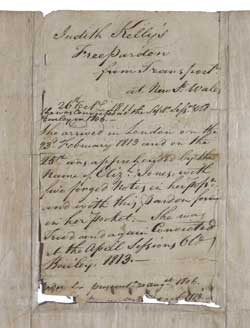 Judith Kelly's
Free Pardon
from Transport
at New So. Wales
26th Octr.
She was Convicted at the Septr. Sessns. Old
Bailey in 1806.
She arrived in London on the
23d. February 1813 and on the
25th was apprehended by the
Name of Eliz: Jones, with
five forged Notes in her possn.
and with this Pardon
in her Pocket. She was
Tried and again Convicted
at the April Sessions Old
Bailey. 1813.
1806